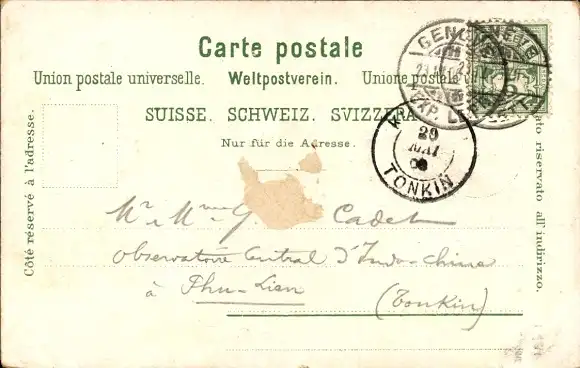 Carte postale
Union postale universelle. Weltpostverein. Unione postale
SUISSE. SCHWEIZ. SVIZZERA
Nur für die Adresse.
Côté réservé à l'adresse.
riservato all' indirizzo.
GENÈVE
EXP. LETT.
29
MAI
TONKIN
Mr & Mme G. Cadet
Observatoire Central d'Indo-chine
à Phu-Lien (Tonkin)